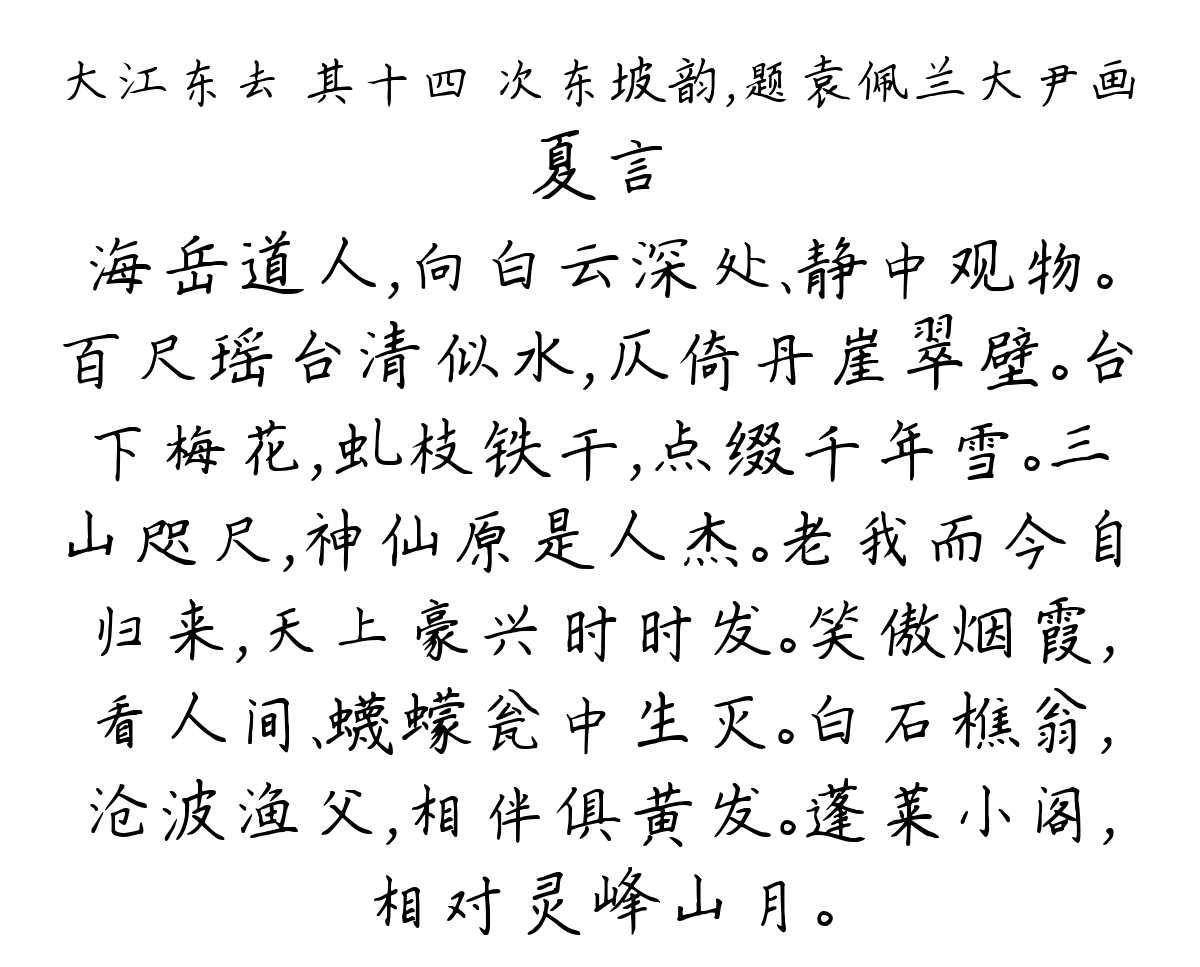 大江东去 其十四 次东坡韵,题袁佩兰大尹画
夏言
海岳道人,向白云深处、静中观物。
百尺瑶台清似水,仄倚丹崖翠壁。台
下梅花,虬枝铁干,点缀千年雪。三
山咫尺,神仙原是人杰。老我而今自
归来,天上豪兴时时发。笑傲烟霞,
看人间、蠛蠓瓮中生灭。白石樵翁,
沧波渔父,相伴俱黄发。蓬莱小阁,
相对灵峰山月。